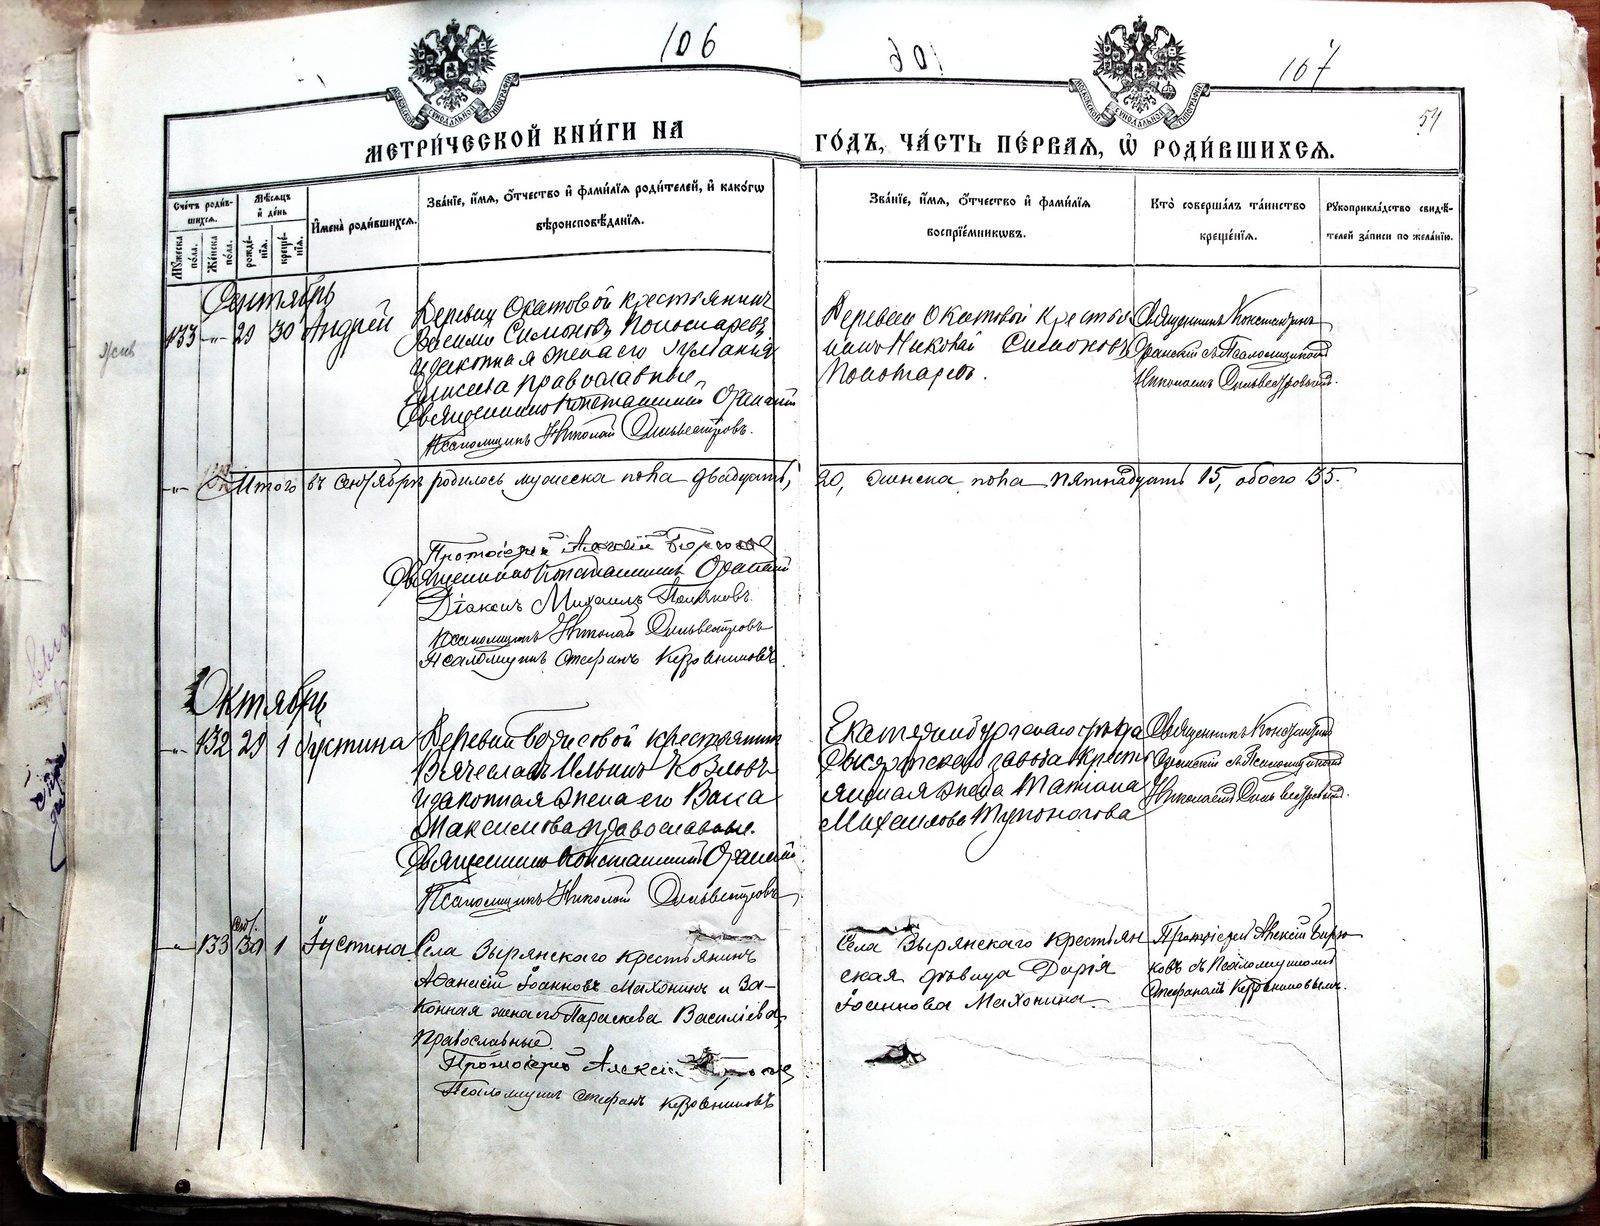 106
106
107
54
МЕТРИ́ЧЕСКОЙ КНИ́ГИ НА
ГО́ДЪ, ЧА́СТЬ ПЕ́РВАЯ, Ѡ҆ РОДИ́ВШИХСЯ.
МОСКОВСКОЙ СѴНОДАЛЬНОЙ ТИПОГРАФІИ
МОСКОВСКОЙ СѴНОДАЛЬНОЙ ТИПОГРАФІИ
Сче́тъ роди́в-
шихся.
Мѹ́жеска по́ла.
Же́нска по́ла.
Мѣ́сяцъ
и҆ де́нь
рожде́-
нїя.
креще́-
нїя.
И҆мена̀ роди́вшихся.
Зва́нїе, и҆́мя, о҆́тчество и҆ фами́лїя роди́телей, и҆ како́гѡ
вѣроисповѣ́данїя.
Зва́нїе, и҆́мя, о҆́тчество и҆ фами́лїя
воспрїе́мниковъ.
Кто̀ соверша́лъ та́инство
креще́нїя.
Рѹкоприкла́дство свидѣ́-
телей за́писи по жела́нїю.
Сентябрь
133 -„- 29 30 Андрей
Деревни Окатовой крестьянинъ
Василій Симоновъ Пономаревъ
и законная жена его
православные.
Священникъ Константинъ
Псаломщикъ Николай Сильвестровъ.
Деревни Окатовой крестья
нинъ Николай Симоновъ
Пономаревъ.
Священникъ Константинъ
съ Псаломщикомъ
Николаемъ Сильвестровымъ.
-„- Итого въ Сентябрѣ родилось мужеска пола двадцать,
20, женска пола пятнадцать 15, обоего 35.
Протоіерей Алексій
Священникъ Константинъ
Діаконъ Михаилъ Поляковъ.
Псаломщикъ Николай Сильвестровъ
Псаломщикъ Стефанъ
Октябрь
-„- 132 29 1 Іустина
Деревни Борисовой крестьянинъ
Вячеславъ Ильинъ Козловъ
и законная жена его Васса
Максимова, православные.
Священникъ Константинъ
Псаломщикъ Николай Сильвестровъ
Екатеринбургскаго уѣзда
Сысертскаго завода крестъ
янская Татіана
Михаилова Тупоногова
Священникъ Константинъ
съ Псаломщикомъ
Николаемъ Сильвестровымъ.
Сент.
-„- 133 30 1 Іустина
Села Зырянскаго крестьянинъ
Аѳанасій Іоанновъ Махонинъ и за-
конная жена его Параскева Васильева,
Православные.
Протоіерей Алексій
Псаломщикъ Стефанъ
Села Зырянскаго крестьян
ская дѣвица Дарія
Іоаннова Махонина.
Протоіерей Алексій Бирю
ковъ съ Псаломщикомъ
Стефаномъ